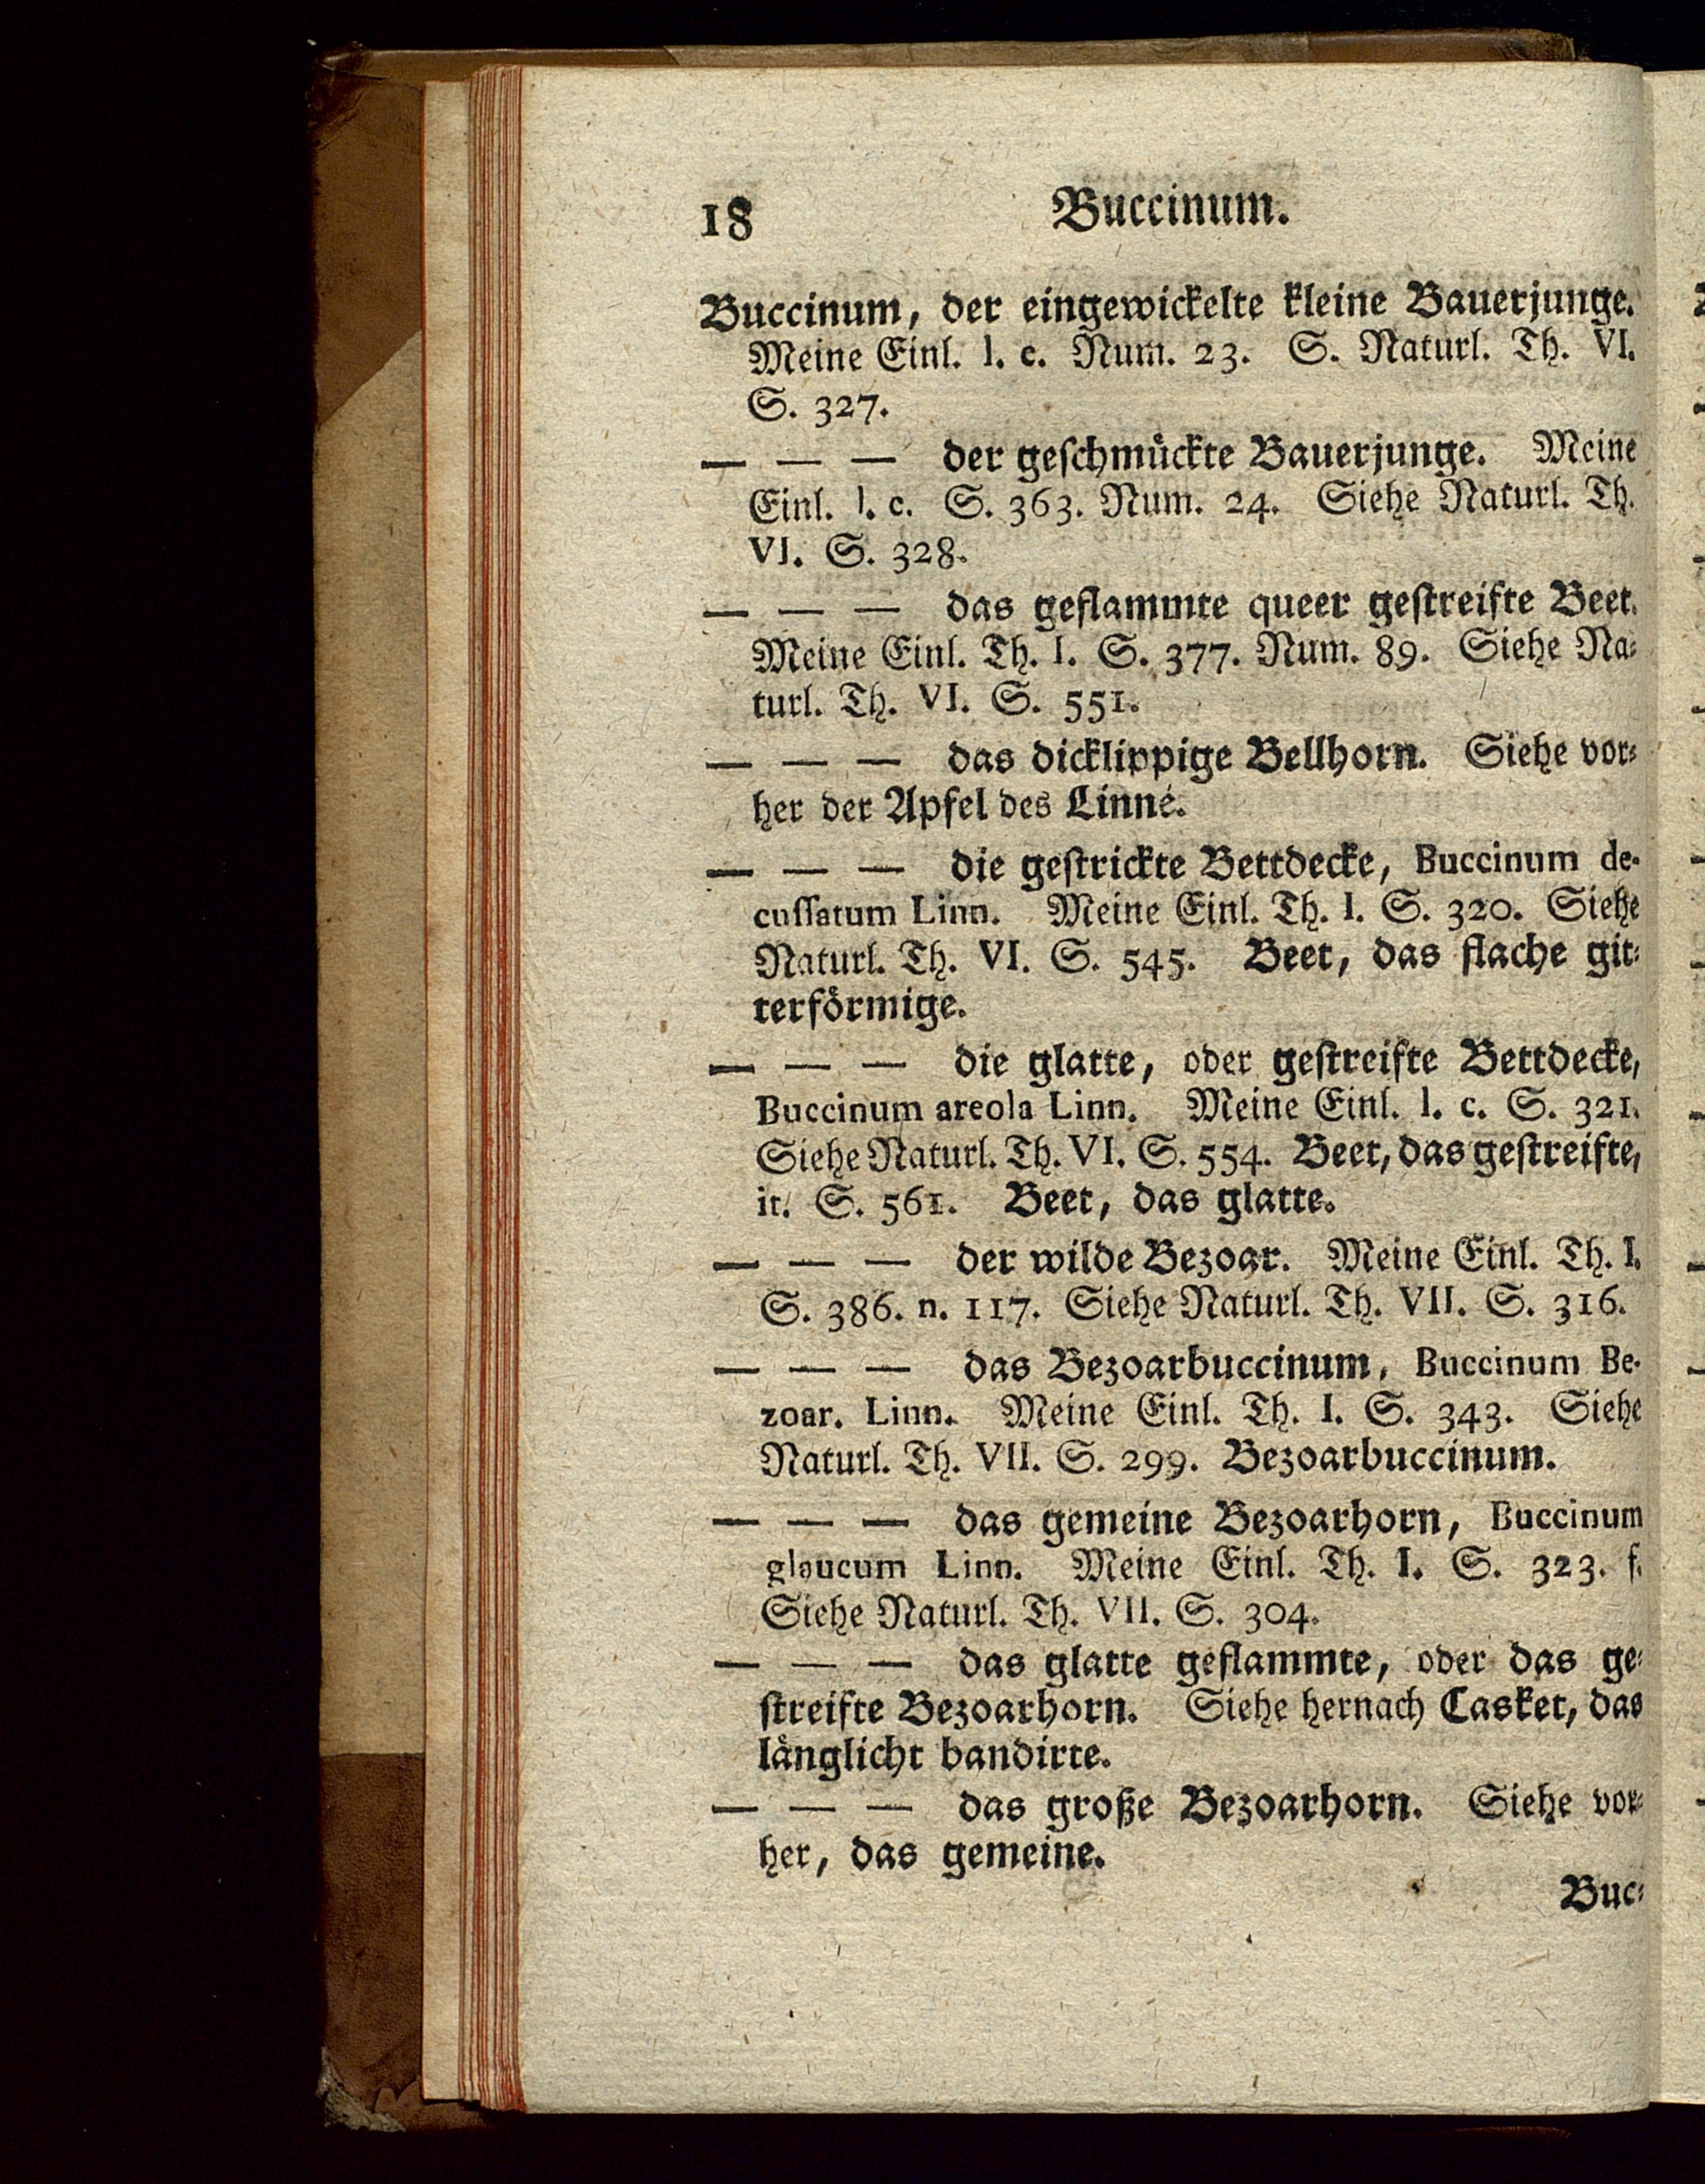 18 Buccinum.
Buccinum, der eingewickelte kleine Bauerjunge.
Meine Einl. l. c. Num. 23. S. Naturl. Th. VI.
S. 327.
— — — der geſchmückte Bauerjunge. Meine
Einl. l. c. S. 363. Num. 24. Siehe Naturl. Th.
VI. S. 328.
— — — das geflammte queer geſtreifte Beet.
Meine Einl. Th. I. S. 377. Num. 89. Siehe Na⸗
turl. Th. VI. S. 551.
— — — das dicklippige Bellhorn. Siehe vor⸗
her der Apfel des Linné.
— — — die geſtrickte Bettdecke, Buccinum de-
cuſſatum Linn. Meine Einl. Th. I. S. 320. Siehe
Naturl. Th. VI. S. 545. Beet, das flache git⸗
terförmige.
— — — die glatte, oder geſtreifte Bettdecke,
Buccinum areola Linn. Meine Einl. l. c. S. 321.
Siehe Naturl. Th. VI. S. 554. Beet, das geſtreifte,
it. S. 561. Beet, das glatte.
— — — der wilde Bezoar. Meine Einl. Th. I.
S. 386. n. 117. Siehe Naturl. Th. VII. S. 316.
— — — das Bezoarbuccinum, Buccinum Be-
zoar. Linn. Meine Einl. Th. I. S. 343. Siehe
Naturl. Th. VII. S. 299. Bezoarbuccinum.
— — — das gemeine Bezoarhorn, Buccinum
glaucum Linn. Meine Einl. Th. I. S. 323. f.
Siehe Naturl. Th. VII. S. 304.
— — — das glatte geflammte, oder das ge⸗
ſtreifte Bezoarhorn. Siehe hernach Casket, das
länglicht bandirte.
— — — das große Bezoarhorn. Siehe vor⸗
her, das gemeine.
Buc⸗